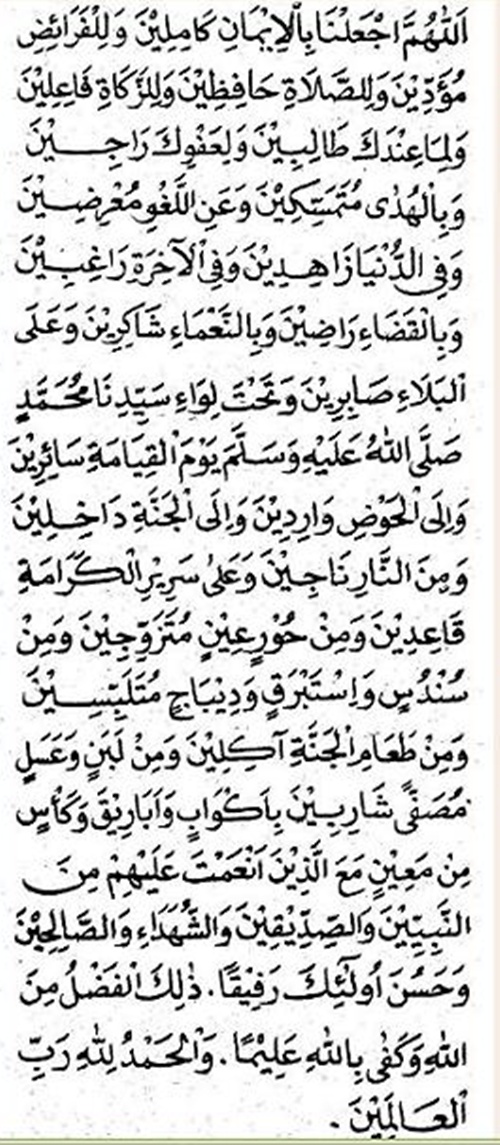 اَللّٰهُمَّ اجْعَلْنَا بِالْاِيْمَانِ كَامِلِيْنَ وَلِلْفَرَائِضِ
مُؤَدِّيْنَ وَلِلصَّلَاةِ حَافِظِيْنَ وَلِلزَّكَاةِ فَاعِلِيْنَ
وَلِمَا عِنْدَكَ طَالِبِيْنَ وَلِعَفْوِكَ رَاجِيْنَ
وَبِالْهُدٰى مُتَمَسِّكِيْنَ وَعَنِ اللَّغْوِ مُعْرِضِيْنَ
وَفِى الدُّنْيَا زَاهِدِيْنَ وَفِى اْلآخِرَةِ رَاغِبِيْنَ
وَبِالْقَضَاءِ رَاضِيْنَ وَبِالنَّعْمَاءِ شَاكِرِيْنَ وَعَلَى
الْبَلَاءِ صَابِرِيْنَ وَتَحْتَ لِوَاءِ سَيِّدِنَا مُحَمَّدٍ
صَلَّى اللهُ عَلَيْهِ وَسَلَّمَ يَوْمَ الْقِيَامَةِ سَائِرِيْنَ
وَاِلَى الْحَوْضِ وَارِدِيْنَ وَاِلَى الْجَنَّةِ دَاخِلِيْنَ
وَمِنَ النَّارِ نَاجِيْنَ وَعَلىٰ سَرِيْرِ الْكَرَامَةِ
قَاعِدِيْنَ وَمِنْ حُوْرٍ عِيْنٍ مُتَزَوِّجِيْنَ وَمِنْ
سُنْدُسٍ وَاِسْتَبْرَقٍ وَدِيْبَاجٍ مُتَلَبِّسِيْنَ
وَمِنْ طَعَامِ الْجَنَّةِ آكِلِيْنَ وَمِنْ لَبَنٍ وَعَسَلٍ
مُصَفًّى شَارِبِيْنَ بِاَكْوَابٍ وَاَبَارِيْقَ وَكَأْسٍ
مِنْ مَعِيْنٍ مَعَ الَّذِيْنَ اَنْعَمْتَ عَلَيْهِمْ مِنَ
النَّبِيِّيْنَ وَالصِّدِّيْقِيْنَ وَالشُّهَدَاءِ وَالصَّالِحِيْنَ
وَحَسُنَ اُولٰٓئِكَ رَفِيْقًا. ذٰلِكَ الْفَضْلُ مِنَ
اللهِ وَكَفٰى بِاللهِ عَلِيْمًا. وَالْحَمْدُ لِلّٰهِ رَبِّ
الْعَالَمِيْنَ.